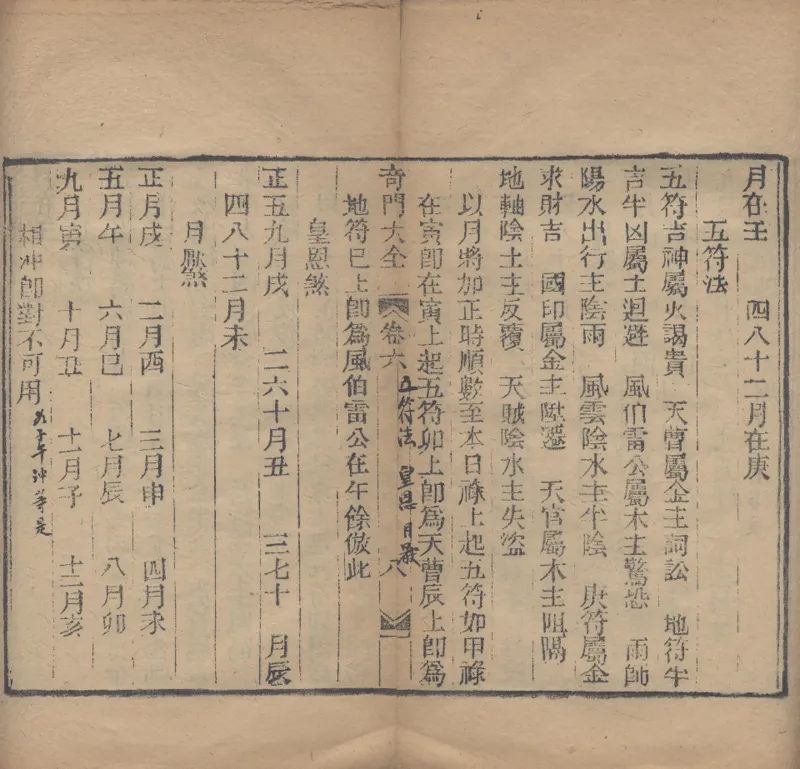 月在壬　四八十二月在庚
五符法
五符吉神屬火謁貴　天曹屬金主詞訟　地符半
吉半凶屬土迴避　風伯雷公屬木主驚恐　雨師
陽水出行主陰雨　風雲陰水主半陰　庚符屬金
求財吉　國印屬金主陞遷　天官屬木主阻隔
地軸陰土主反覆　天賊陰水主失盜
以月將加正時順數至本日祿上起五符如甲祿
在寅卽在寅上起五符卯上卽為天曹辰上卽為
奇門大全　卷六　五符法　皇恩　月厭　八
地符巳上卽為風伯雷公在午餘倣此
皇恩煞
正五九月戌　二六十月丑　三七十　月辰
四八十二月未
月厭煞
正月戌　二月酉　三月申　四月未
五月午　六月巳　七月辰　八月卯
九月寅　十月丑　十一月子　十二月亥
相冲卽對不可用　如子午冲等是